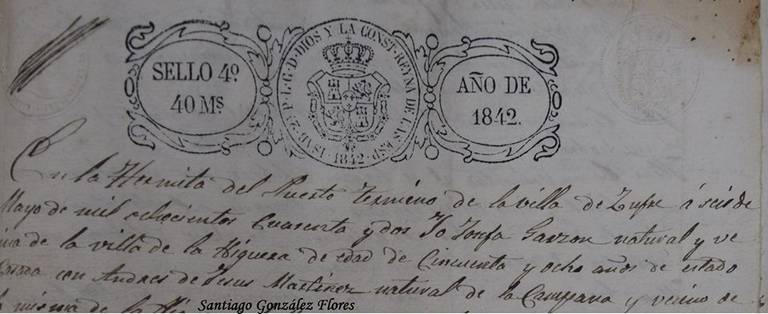 SELLO 4º
40 Mˢ
ISAB. 2ª P. L. G. D. DIOS Y LA CONST. REYNA DE LAS ESP.
1842
AÑO DE
1842.
En la Hermita del Puerto termino de la villa de Zufre á seis de
Mayo de mil ochocientos cuarenta y dos Yo Josefa Garzon natural y ve
ina de la villa de la Higuera de edad de Cincuenta y ocho años de estado
Casada con Andres de Jesus Martinez natural de la Campana y vecino de
misma de la Hi
Santiago González Flores